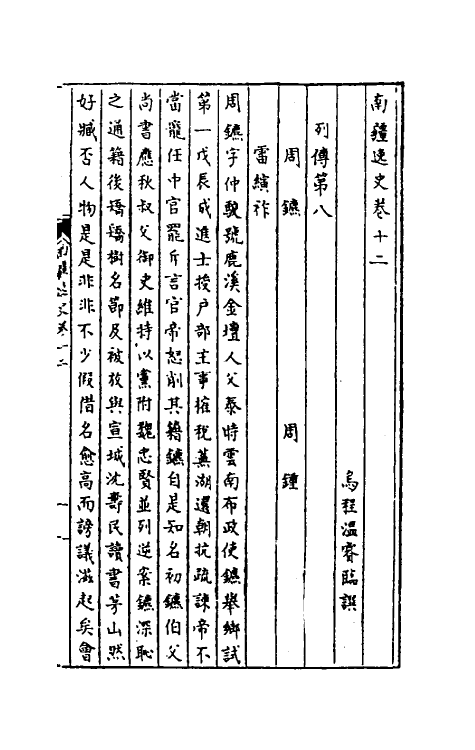 南疆逸史卷十二
烏程溫睿臨譔
列傳第八
周鑣　周鍾
雷縯祚
周鑣字仲馭號鹿溪金壇人父泰時雲南布政使鑣舉鄉試
第一戊辰成進士授戶部主事榷稅蕪湖還朝抗疏諫帝不
當寵任中官罷斥言官帝怒削其籍鑣自是知名初鑣伯父
尚書應秋叔父御史維持以黨附魏忠賢並列逆案鑣深恥
之通籍後矯矯樹名節及被放與宣城沈壽民讀書茅山然
好臧否人物是是非非不少假借名愈高而謗議滋起矣會
南疆逸史卷十二
一